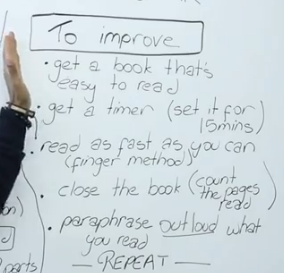 To improve
• get a book that's
easy to read
• get a timer (set it for
15mins)
• read as fast as you can
(finger method)
• close the book (count
the pages
read)
• paraphrase outloud what
you read
— REPEAT —
on)
parts